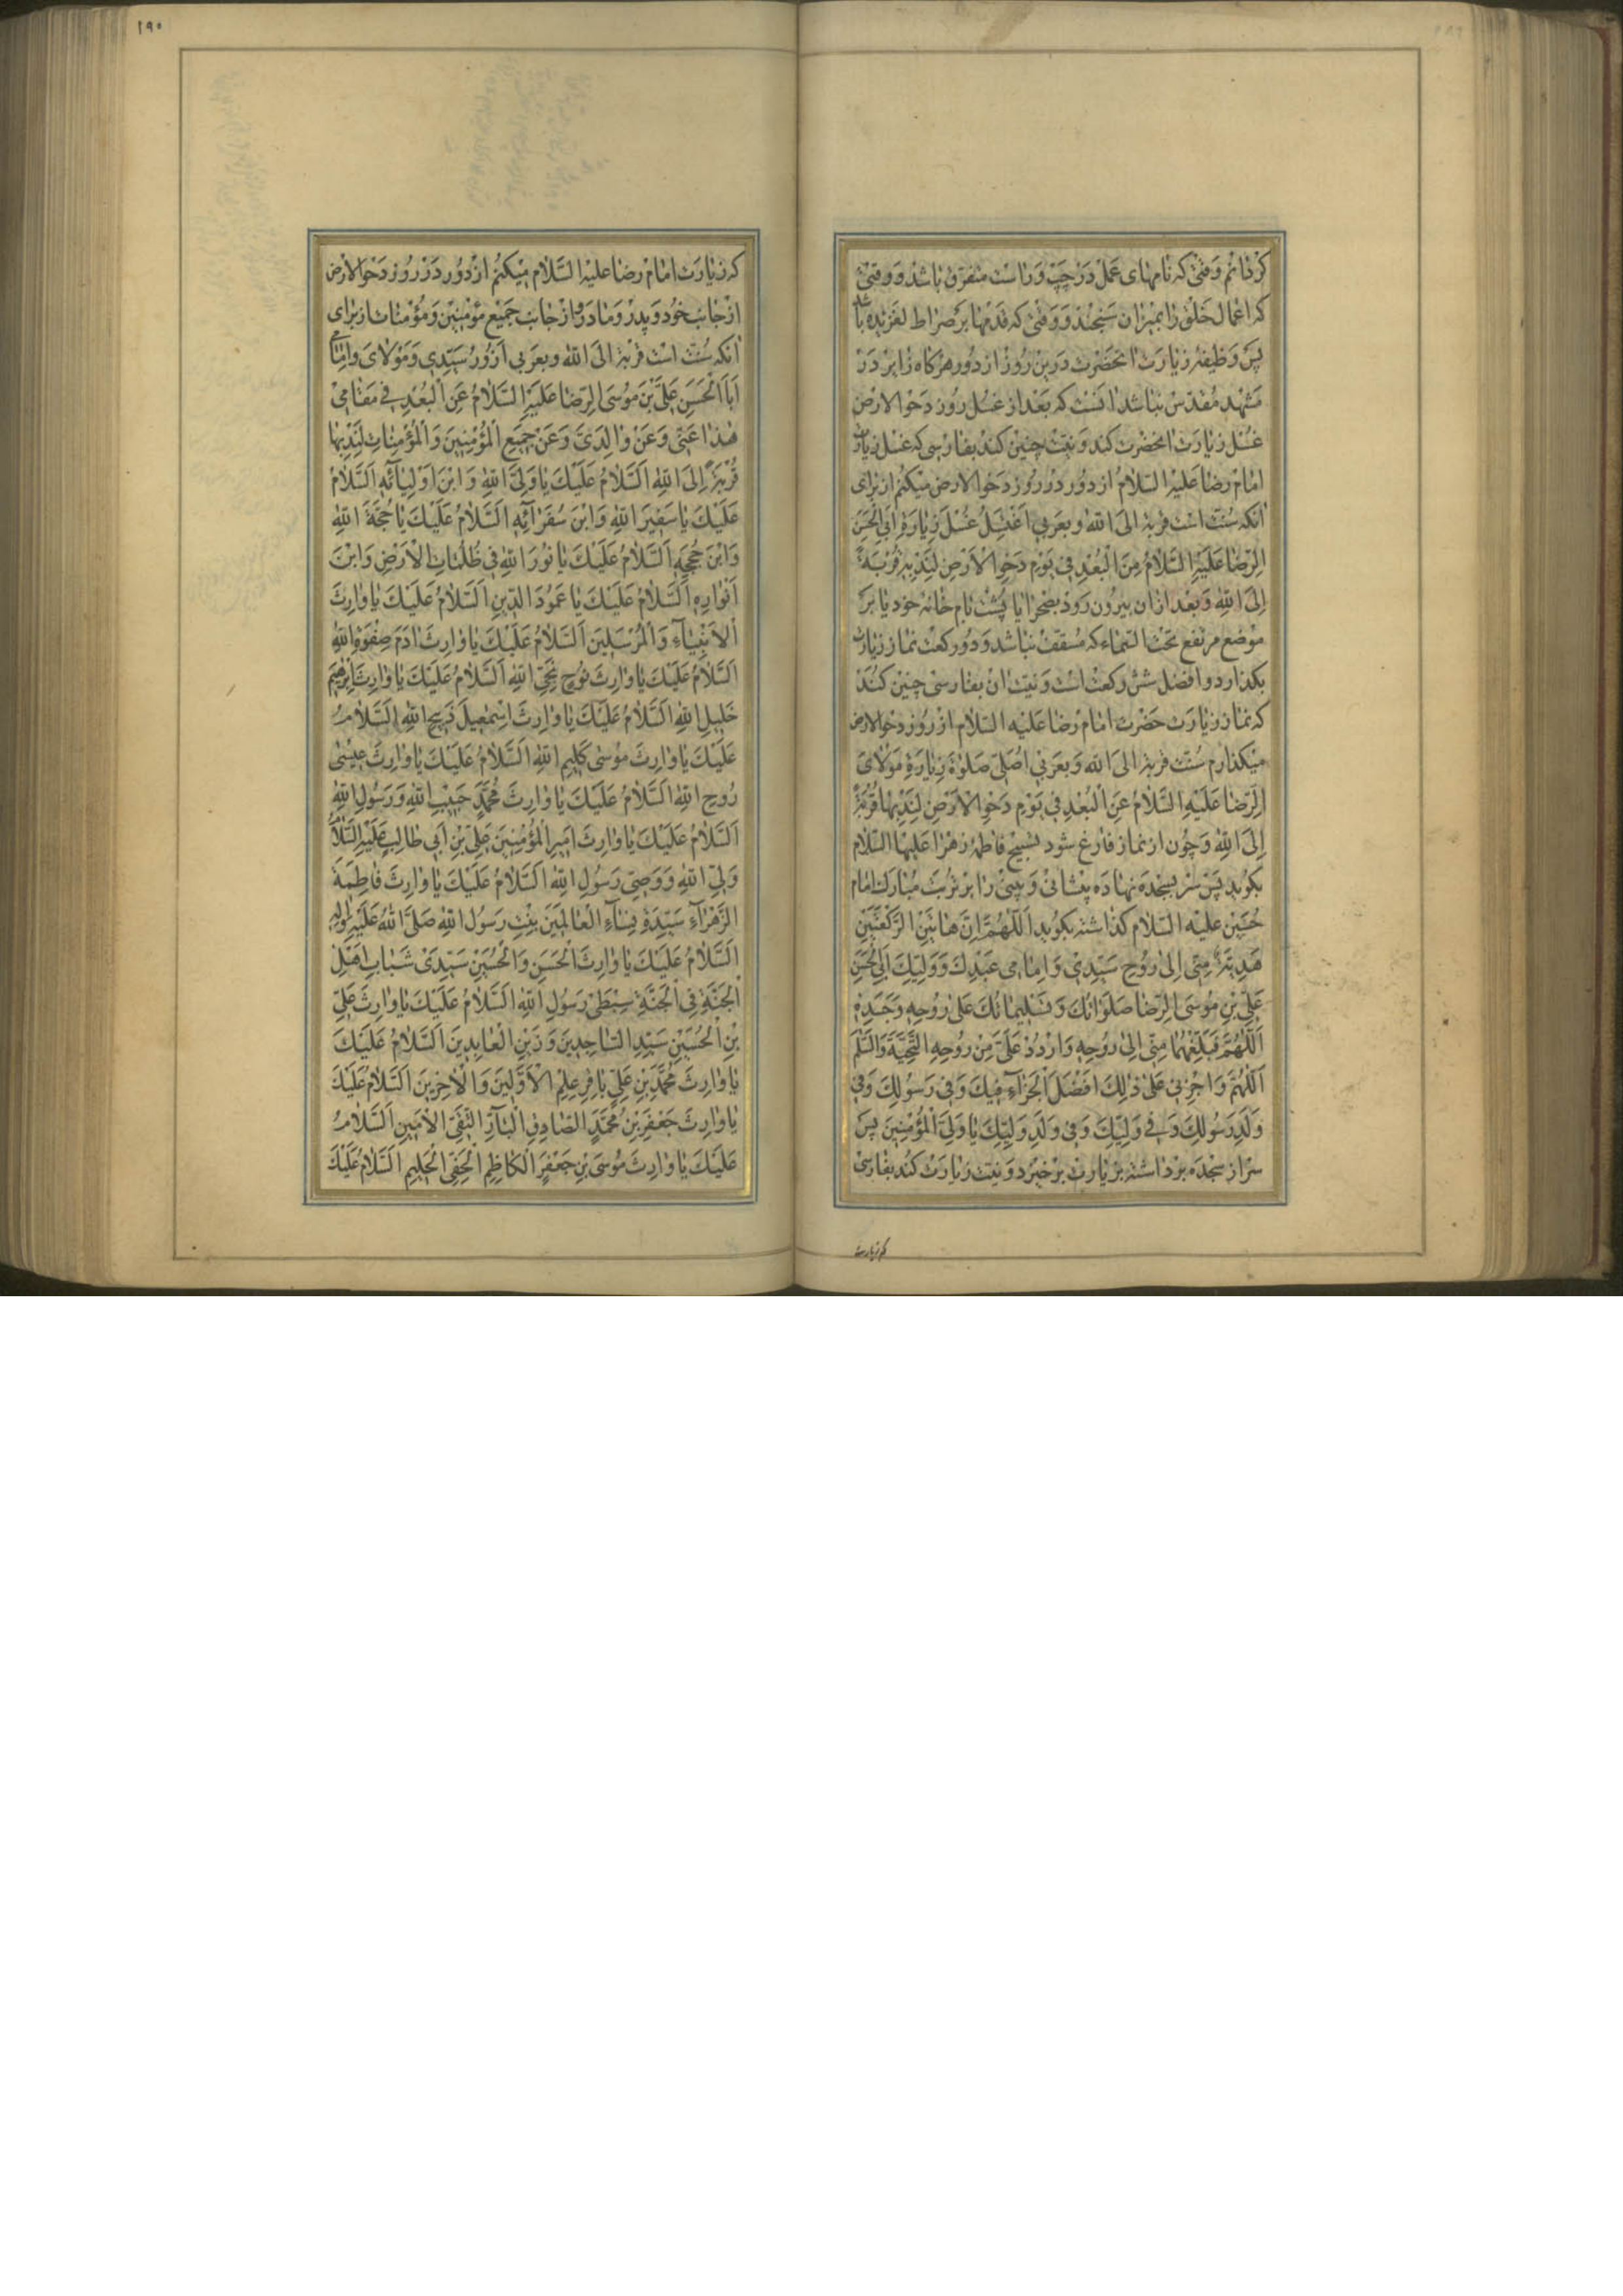 کردانم وقتی که نامهای عمل در چپ و راست متفرق باشد و وقتی
که اعمال خلق را بمیزان سنجند و وقتی که قدمها بر صراط لغزیده باشد
پس وظیفهٔ زیارت انحضرت درین روز از دور هرکاه زایر در
مشهد مقدس نباشد انست که بعد از غسل روز دحو الارض
غسل زیارت انحضرت کند و نیت چنین کند بفارسی که غسل زیارت
امام رضا علیه السلام از دور در روز دحو الارض میکنم از برای
انکه سنت است قربة الی الله و بعربی اغتسل غسل زیارة ابی الحسن
الرضا علیه السلام من البعد فی یوم دحو الارض لندبه قربة
الی الله و بعد از ان بیرون رود بصحرا یا پشت بام خانه خود یا بر
موضع مرتفع تحت السماء که مسقف نباشد و دو رکعت نماز زیارت
بکذارد و افضل شش رکعت است و نیت ان بفارسی چنین کند
که نماز زیارت حضرت امام رضا علیه السلام از روز دحو الارض
میکذارم سنت قربة الی الله و بعربی اصلی صلوة زیارة مولای
الرضا علیه السلام عن البعد فی یوم دحو الارض لندبها قربة
الی الله و چون از نماز فارغ شود تسبیح فاطمه زهرا علیها السلام
بکوید پس سر بسجده نهاده پیشانی و بینی را بر تربت مبارک امام
حسین علیه السلام کذاشته بکوید اللهم ان هاتین الرکعتین
هدیة منی الی روح سیدی و امامی عبدک و ولیک ابی الحسن
علی بن موسی الرضا صلواتک و تسلیماتک علی روحه و جسده
اللهم فبلغهما منی الی روحه و اردد علی من روحه التحیة والسلم
اللهم و اجزنی علی ذلک افضل الجزاء فیک و فی رسولک و فی
ولد رسولک و فی ولیک و فی ولد ولیک یا ولی المؤمنین پس
سر از سجده برداشته بزیارت برخیزد و نیت زیارت کند بفارسی
که زیارت
١٩٠
که زیارت امام رضا علیه السلام میکنم از دور در روز دحو الارض
از جانب خود و پدر و مادر و از جانب جمیع مؤمنین و مؤمنات از برای
انکه سنت است قربة الی الله و بعربی ازور سیدی و مولای و امامی
ابا الحسن علی بن موسی الرضا علیه السلام عن البعد فی مقامی
هذا عنی و عن والدی و عن جمیع المؤمنین و المؤمنات لندبها
قربة الی الله السلام علیک یا ولی الله و ابن اولیائه السلام
علیک یا سفیر الله و ابن سفرائه السلام علیک یا حجة الله
و ابن حججه السلام علیک یا نور الله فی ظلمات الارض و ابن
انواره السلام علیک یا عمود الدین السلام علیک یا وارث
الانبیاء و المرسلین السلام علیک یا وارث ادم صفوة الله
السلام علیک یا وارث نوح نجی الله السلام علیک یا وارث ابرهیم
خلیل الله السلام علیک یا وارث اسمعیل ذبیح الله السلام
علیک یا وارث موسی کلیم الله السلام علیک یا وارث عیسی
روح الله السلام علیک یا وارث محمد حبیب الله و رسول الله
السلام علیک یا وارث امیر المؤمنین علی بن ابی طالب علیه السلام
ولی الله و وصی رسول الله السلام علیک یا وارث فاطمة
الزهراء سیدة نساء العالمین بنت رسول الله صلی الله علیه و اله
السلام علیک یا وارث الحسن و الحسین سیدی شباب اهل
الجنة فی الجنة سبطی رسول الله السلام علیک یا وارث علی
بن الحسین سید الساجدین و زین العابدین السلام علیک
یا وارث محمد بن علی باقر علم الاولین و الاخرین السلام علیک
یا وارث جعفر بن محمد الصادق البار التقی الامین السلام
علیک یا وارث موسی بن جعفر الکاظم الحفی الحلیم السلام علیک